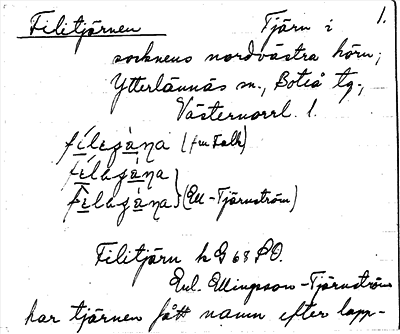 Filitjärnen Tjärn i 1.
socknens nordvästra hörn,
Ytterlännäs sn., Boteå tg.,
Västernorrl. l.
(fm Falk)
(Ell-Tjärnström)
Filitjärn k G 68 SO.
Enl. Ellingsson-Tjärnström
har tjärnen fått namn efter lapp-